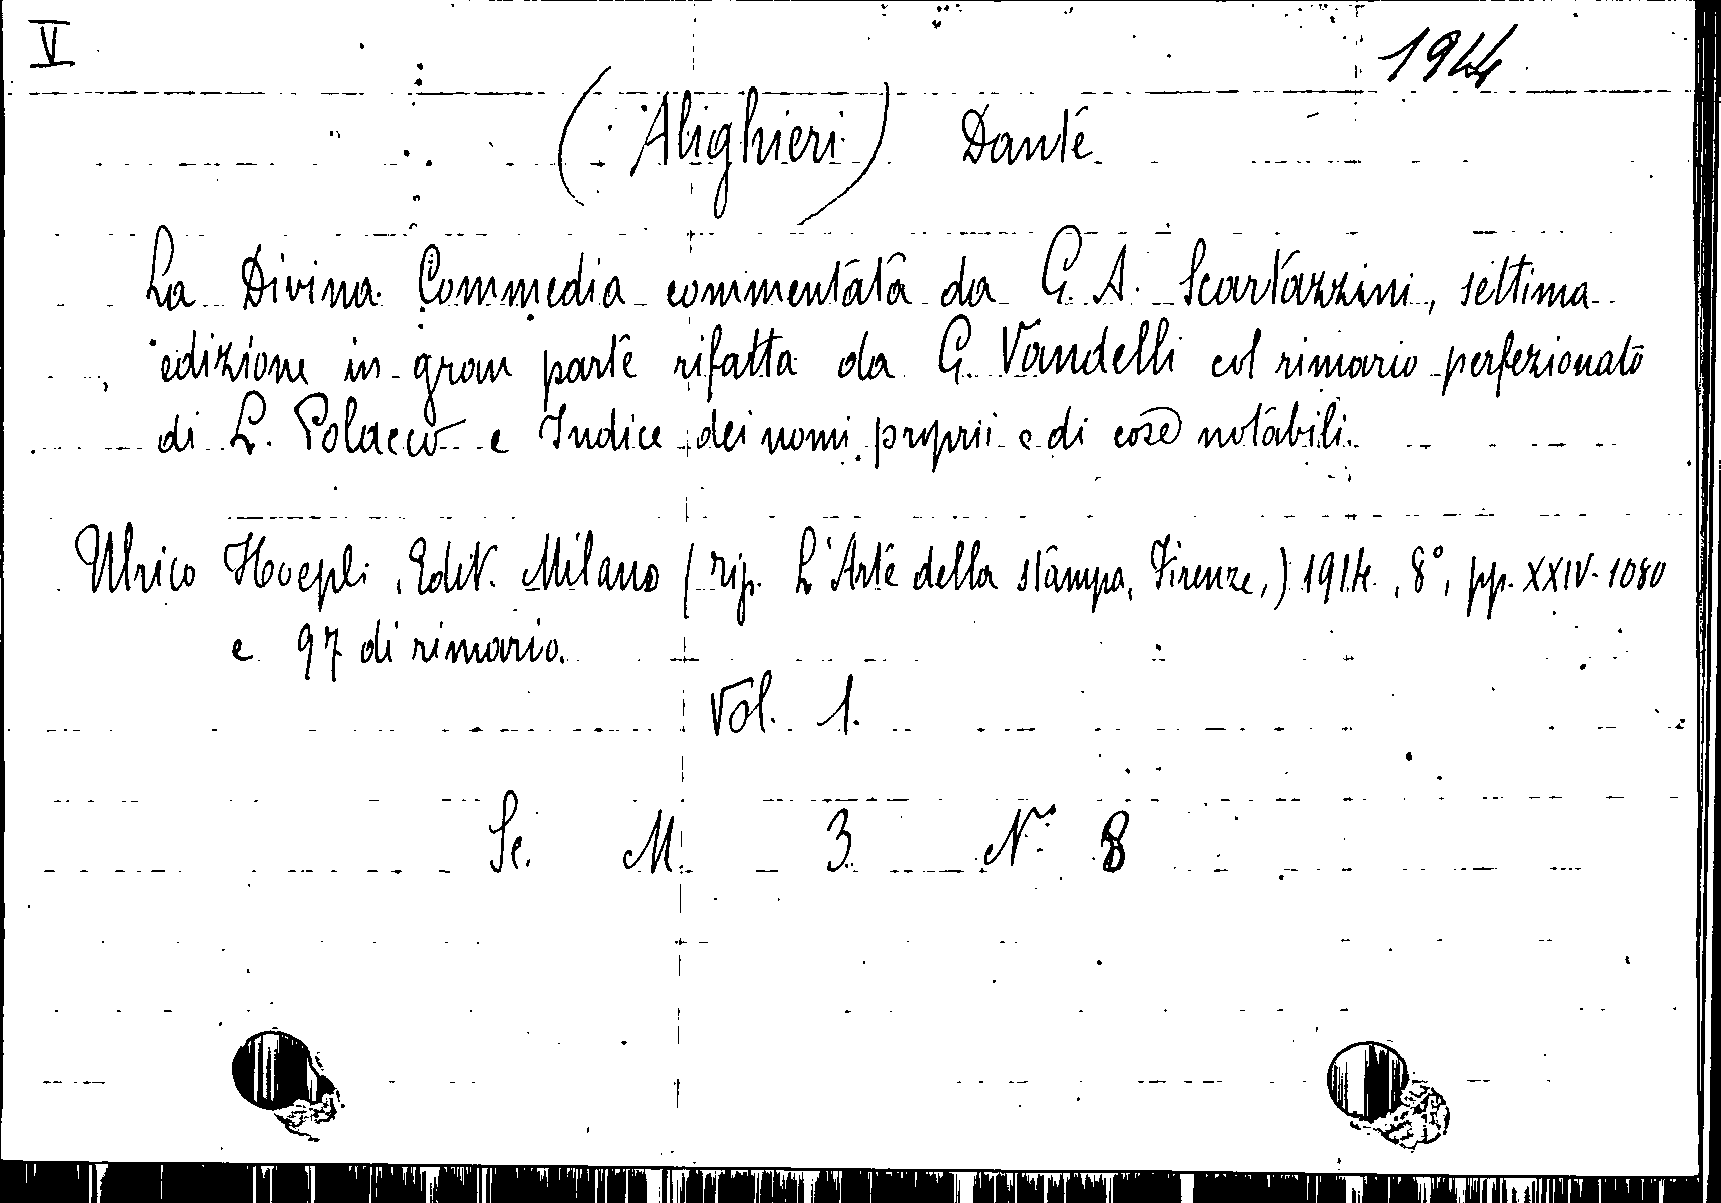 V
1944
(Alighieri) Dante
La Divina Commedia commentata da G. A. Scartazzini, settima
edizione in gran parte rifatta da G. Vandelli col rimario perfezionato
di L. Polacco e Indice dei nomi proprii e di cose notabili.
Ulrico Hoepli, Edit. Milano (Tip. L'Arte della stampa, Firenze,) 1914, 8°, pp. XXIV-1080
e 97 di rimario.
Vol. 1.
Sc. M 3 N° 8